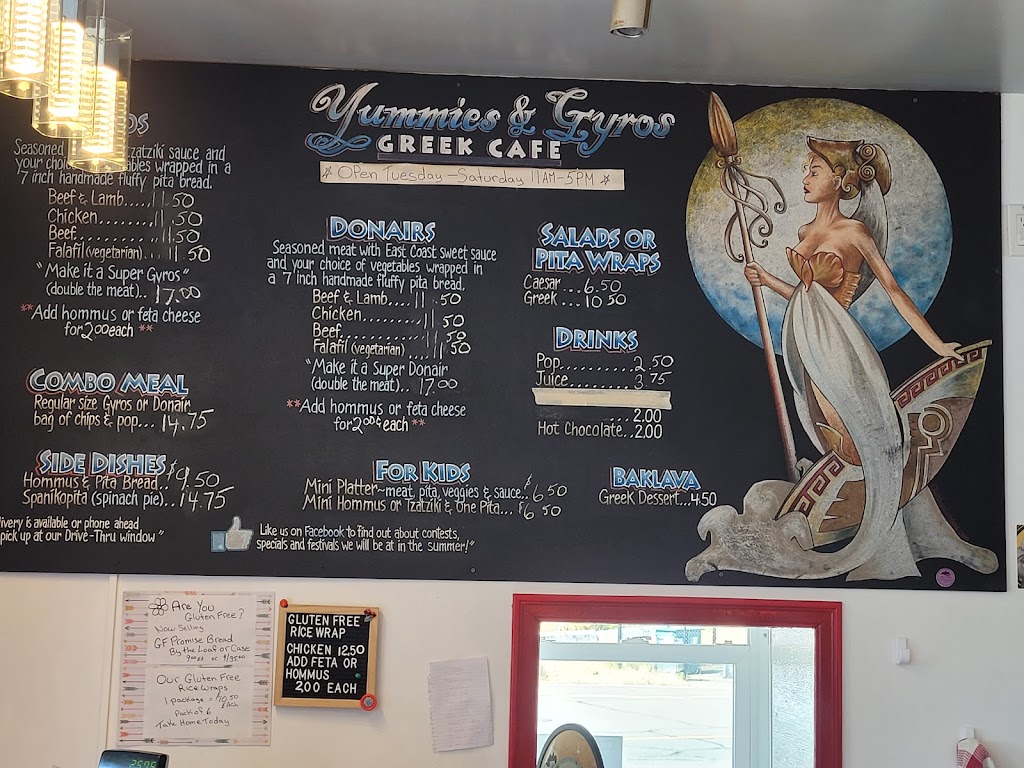 Yummies & Gyros
GREEK CAFE
☆ Open Tuesday - Saturday 11AM-5PM ☆
Seasoned tzatziki sauce, and
your choice vegetables wrapped in a
7 inch handmade fluffy pita bread.
Beef & Lamb.....11.50
Chicken..........11.50
Beef..........11.50
Falafil (vegetarian)....11.50
"Make it a Super Gyros"
(double the meat)..17.00
**Add hommus or feta cheese
for 2.00 each **
COMBO MEAL
Regular size Gyros or Donair
bag of chips & pop... 14.75
SIDE DISHES
Hommus & Pita Bread...$9.50
Spanikopita (spinach pie)...14.75
livery is available or phone ahead
pick up at our Drive-Thru window"
DONAIRS
Seasoned meat with East Coast sweet sauce
and your choice of vegetables wrapped in
a 7 inch handmade fluffy pita bread.
Beef & Lamb....11.50
Chicken..........11.50
Beef............11.50
Falafil (vegetarian)....11.50
"Make it a Super Donair
(double the meat)..17.00
**Add hommus or feta cheese
for 2.00 each **
FOR KIDS
Mini Platter~meat, pita, veggies & sauce..$6.50
Mini Hommus or Tzatziki & One Pita...$6.50
Like us on Facebook to find out about contests,
specials and festivals we will be at in the summer!"
SALADS OR
PITA WRAPS
Caesar...6.50
Greek...10.50
DRINKS
Pop..........2.50
Juice.........3.75
..........2.00
Hot Chocolate..2.00
BAKLAVA
Greek Dessert...4.50
Are You
Gluten Free?
Now Selling
GF Promise Bread
By the Loaf or Case
Our Gluten Free
Rice Wraps
1 package = $10.50 each
Pack of 6
Take Home Today
GLUTEN FREE
RICE WRAP
CHICKEN 12.50
ADD FETA OR
HOMMUS
2.00 EACH